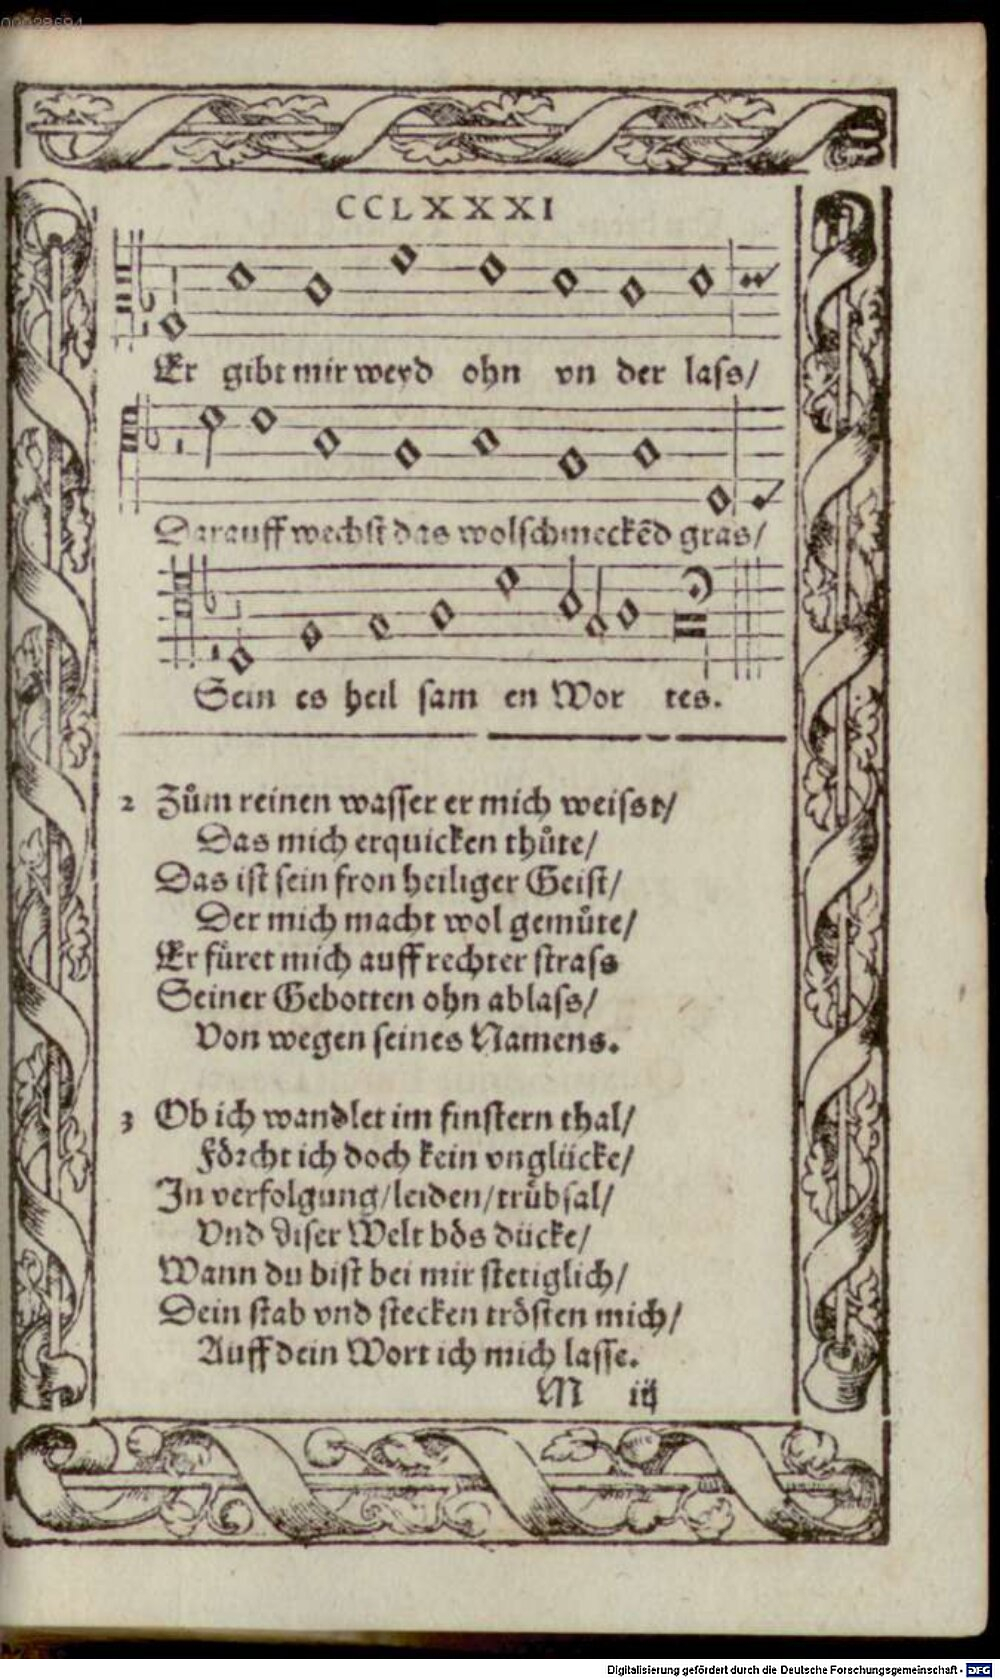 00028694
CCLXXXI
Er gibt mir weyd ohn vn der lass/
Darauff wechst das wolschmeckẽd gras/
Sein es heil sam en Wor tes.
2 Zům reinen wasser er mich weisst/
Das mich erquicken thůte/
Das ist sein fron heiliger Geist/
Der mich macht wol gemůte/
Er fůret mich auff rechter strass
Seiner Gebotten ohn ablass/
Von wegen seines Namens.
3 Ob ich wandlet im finstern thal/
Förcht ich doch kein vnglücke/
In verfolgung/leiden/trůbsal/
Vnd diser Welt bös dücke/
Wann du bist bei mir stetiglich/
Dein stab vnd stecken trösten mich/
Auff dein Wort ich mich lasse.
M iij
Digitalisierung gefördert durch die Deutsche Forschungsgemeinschaft - DFG